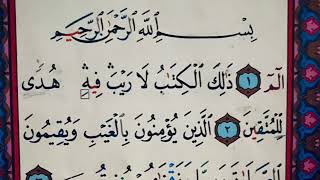 بِسْمِ اللَّهِ الرَّحْمَٰنِ الرَّحِيمِ
الٓمٓ ١ ذَٰلِكَ الْكِتَابُ لَا رَيْبَ فِيهِ هُدًى
لِلْمُتَّقِينَ ٢ الَّذِينَ يُؤْمِنُونَ بِالْغَيْبِ وَيُقِيمُونَ